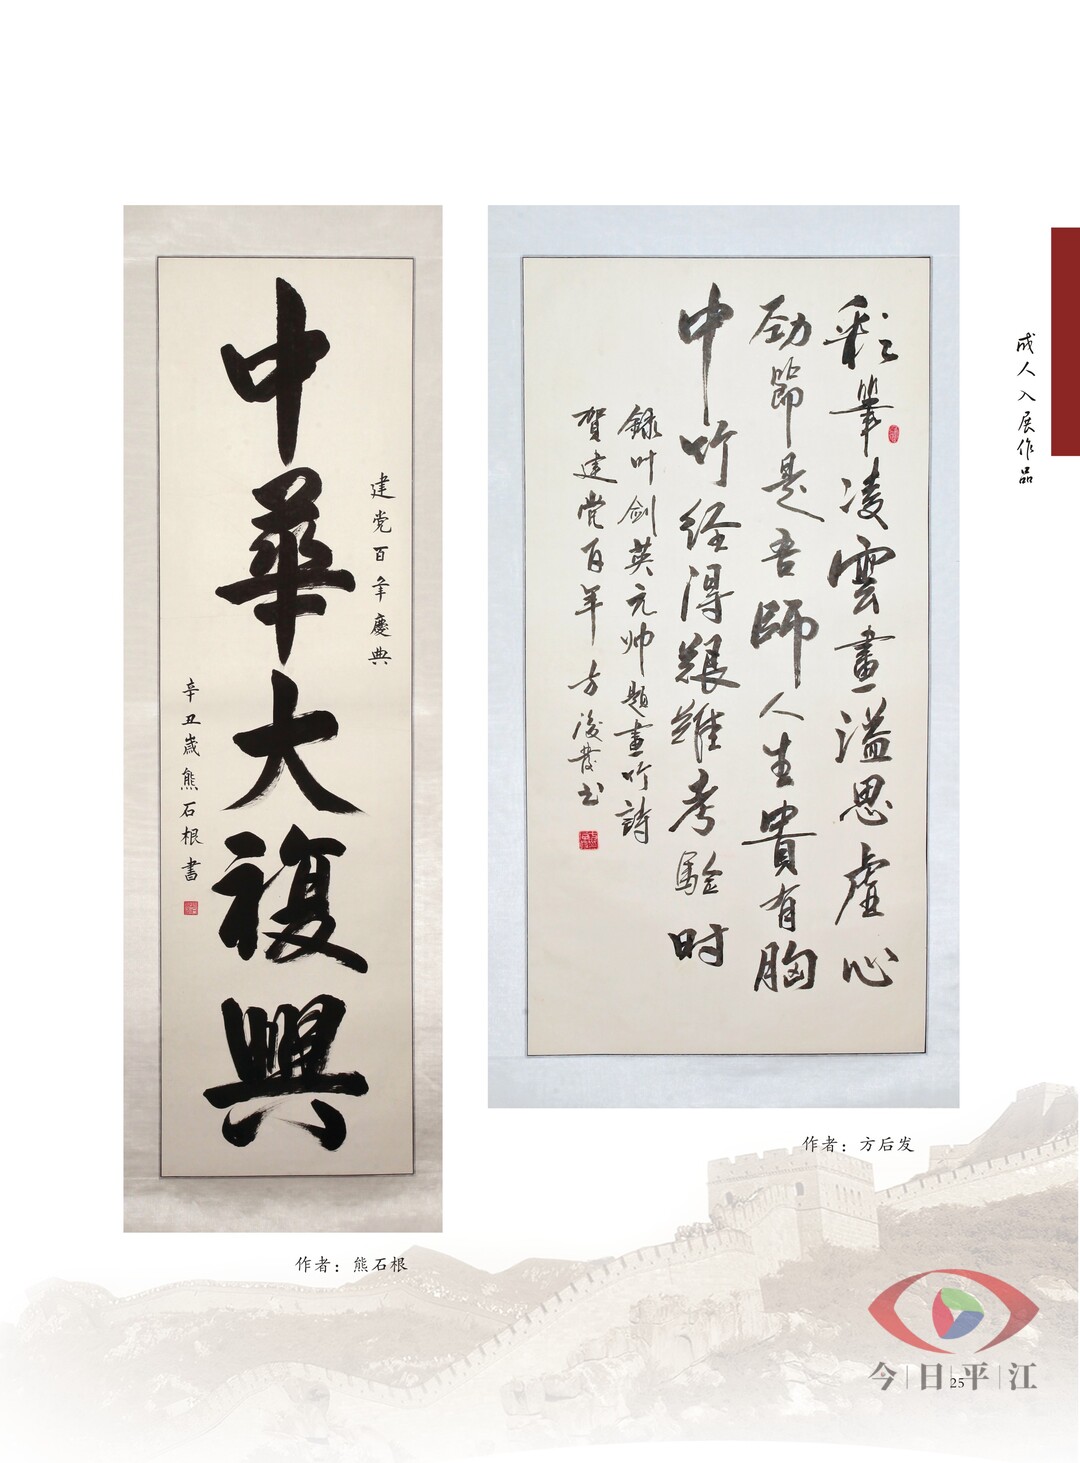 建党百年慶典
中華大複興
辛丑歲熊石根書
作者：熊石根
彩筆凌雲畫溢思虛心
劲節是吾師人生貴有胸
中竹经得艱難考驗时
録叶劍英元帅題畫竹詩
賀建党百年 方後發书
作者：方后发
成人入展作品
今日平江
25